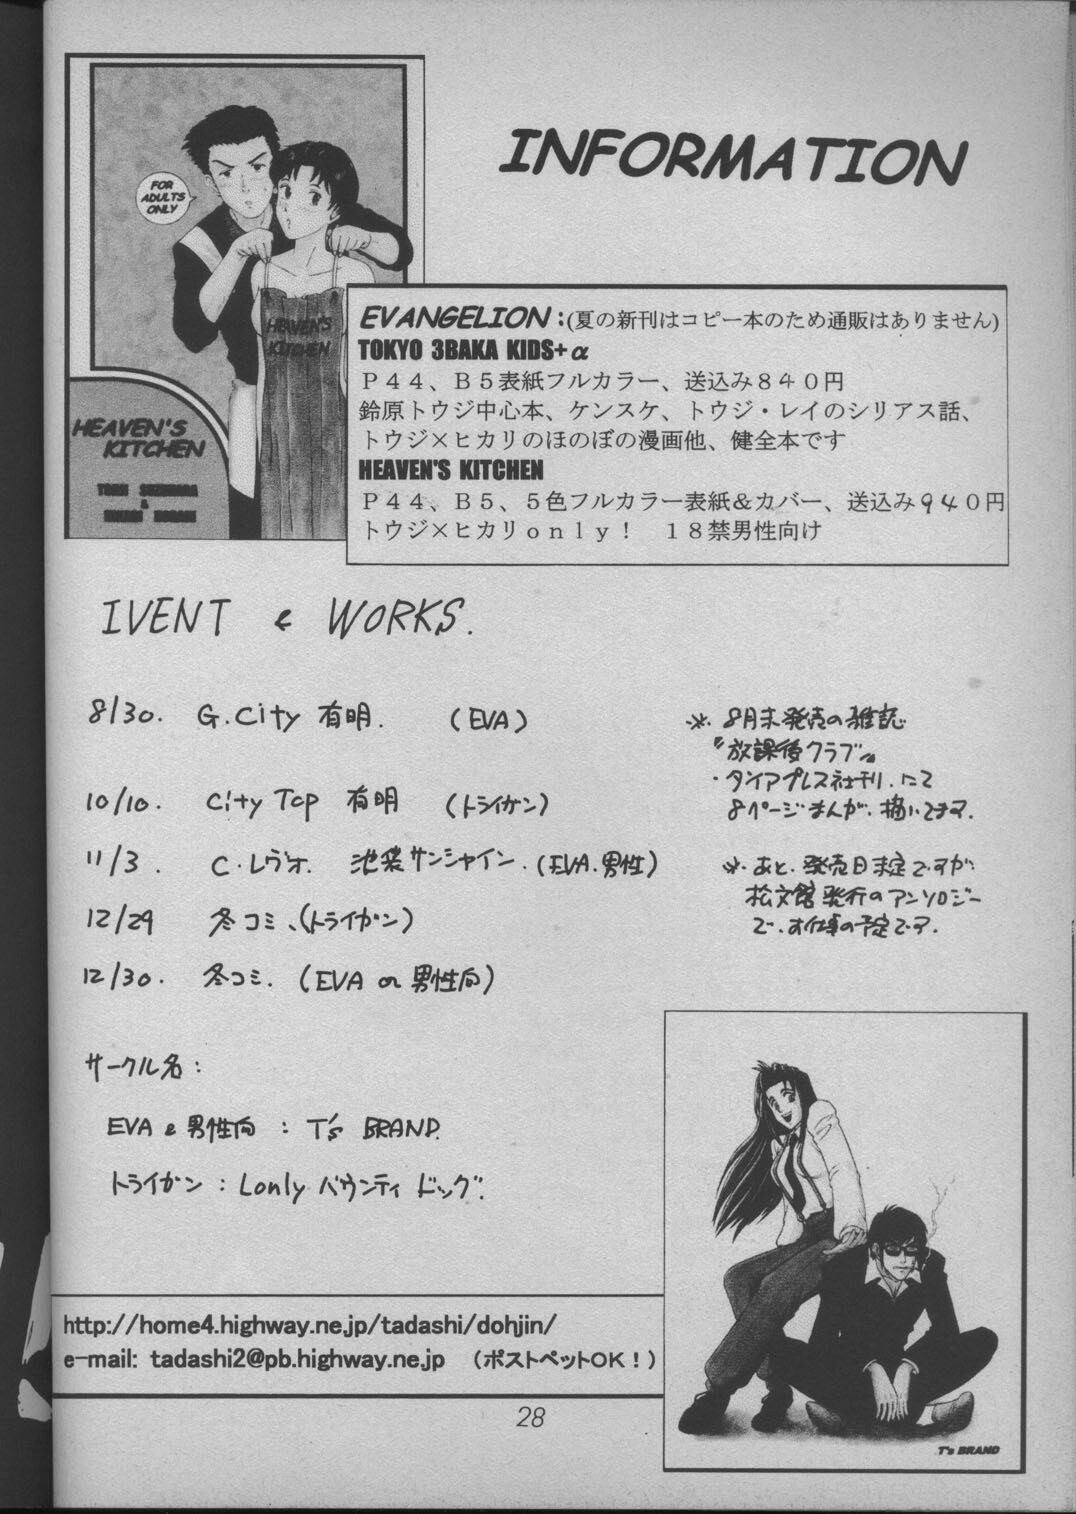 INFORMATION
FOR
ADULTS
ONLY
HEAVEN'S
KITCHEN
HEAVEN'S
KITCHEN
&
EVANGELION:(夏の新刊はコピー本のため通販はありません)
TOKYO 3BAKA KIDS+α
P44、B5表紙フルカラー、送込み840円
鈴原トウジ中心本、ケンスケ、トウジ・レイのシリアス話、
トウジ×ヒカリのほのぼの漫画他、健全本です
HEAVEN'S KITCHEN
P44、B5、5色フルカラー表紙&カバー、送込み940円
トウジ×ヒカリonly! 18禁男性向け
IVENT & WORKS.
8/30. G.City 有明. (EVA)
10/10. City Top 有明 (トライガン)
11/3 C・レヴォ. 池袋サンシャイン.(EVA.男性)
12/29 冬コミ、(トライガン)
12/30. 冬コミ. (EVA or 男性向)
※. 8月末発売の雑誌
『放課後クラブ』
・タイアプレス社刊.にて
8ページまんが、描いてます.
※. あと、発売日未定ですが
松文館発行のアンソロジー
で、お仕事の予定です.
サークル名:
EVA & 男性向 : T's BRAND.
トライガン : Lonly バウンティ ドッグ.
http://home4.highway.ne.jp/tadashi/dohjin/
e-mail: tadashi2@pb.highway.ne.jp (ポストペットOK!)
28
T's BRAND